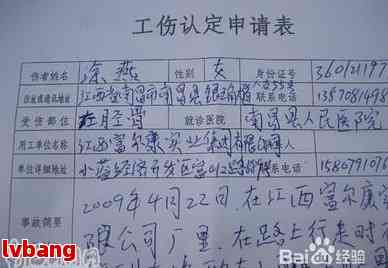 工伤认定申请表
伤者姓名 涂燕 性别 女 身份证号 360121197
住址或通讯地址 江西省南昌市南昌县 联系电话 1357081498
受伤部位 左胫骨 就诊医院 南昌县人民医院
用工单位名称 江西富尔康实业集团有限 人
单位详细地址 小蓝经济开发区富山 路 联系电话 1580791016
事故简要 2009年4月22日,在江西富尔康实
限公司厂里,在路上行走时
lvbang
Bai 百